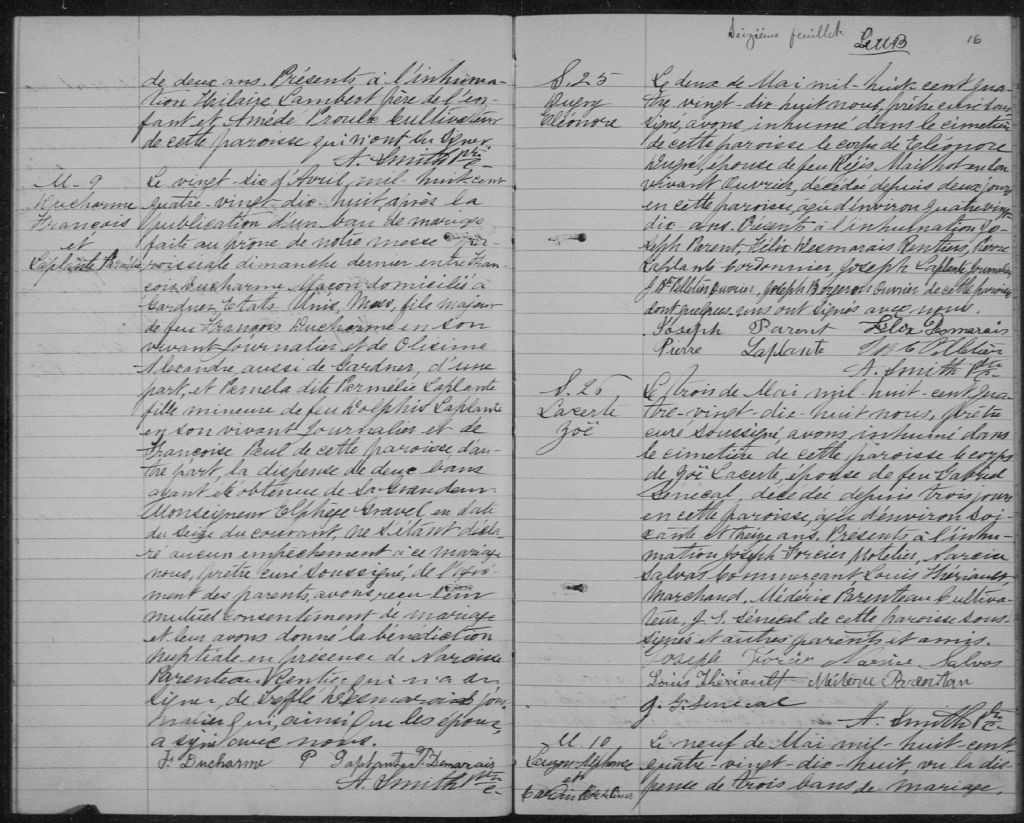 de deux ans. Présents à l'inhuma-
tion Hilaire Lambert père de l'en-
fant et Amédé Proulx Cultivateur
de cette paroisse qui n'ont su signer.
A. Smith Ptre
M. 9
Ducharme
François
et
Laplante Pamela
Le vingt-six d'Avril, mil-huit-cent
quatre-vingt-dix-huit, après la
publication d'un ban de mariage
faite au prone de notre messe pa-
roissiale dimanche dernier entre Fran-
çois Ducharme Maçon domicilié à
Gardner, Etats Unis, Mass, fils majeur
de feu François Ducharme en son
vivant Journalier et de Olisime
Alexandre aussi de Gardner, d'une
part, et Pamela dite Permélie Laplante
fille mineure de feu Dolphis Laplante
en son vivant Journalier et de
Françoise Paul de cette paroisse d'au-
tre part, la dispense de deux bans
ayant été obtenue de Sa Grandeur
Monseigneur Elphège Gravel en date
du seize du courant, ne s'étant décla-
ré aucun empêchement à ce mariage
nous, prêtre curé soussigné, de l'agré-
ment des parents, avons reçu leur
mutuel consentement de mariage
et leur avons donné la bénédiction
nuptiale en présence de Narcisse
Parenteau Rentier qui n'a su
signer, de Trefflé Desmarais jour-
nalier qui, ainsi que les époux,
a signé avec nous.
F. Ducharme P Laplante T. Demarais
A. Smith Ptre c-
Seizième feuillet
16
S. 25
Dugré
Eléonore
Le deux de Mai mil-huit-cent qua-
tre-vingt-dix-huit nous, prêtre curé sous-
signé, avons inhumé dans le cimetière
de cette paroisse le corps de Eléonore
Dugré, épouse de feu Régis Mailhot en son
vivant Ouvrier, décédée depuis deux jours
en cette paroisse, âgée d'environ quatre vingt-
dix ans. Présents à l'inhumation Jo-
seph Parent, Félix Desmarais Rentiers, Pierre
Laplante Cordonnier, Joseph Laplante Journalier,
J. Bte Pelletier Ouvrier, Joseph Ouvrier de cette paroisse
dont quelques uns ont signés avec nous.
Joseph Parent Félix Demarais
Pierre Laplante J B Pelletier
A. Smith Ptre c-
S. 26
Lacerte
Zoë
Le trois de Mai mil-huit-cent qua-
tre-vingt-dix-huit nous, prêtre
curé soussigné, avons inhumé dans
le cimetière de cette paroisse le corps
de Zoë Lacerte, épouse de feu Gabriel
Sénécal, décédée depuis trois jours
en cette paroisse, âgée d'environ soi-
xante et treize ans. Présents à l'inhu-
mation Joseph Forcier Hotelier, Narcisse
Salvas Commerçant Louis Thériault
Marchand, Médéric Parenteau Cultiva-
teur, J. G. Sénécal de cette paroisse sous-
signés et autres parents et amis.
Joseph Forcier Narcisse Salvas
Louis Thériault Médéric Parenteau
J. G. Senecal
A. Smith Ptre c-
M. 10
Alphonse
et
Le neuf de Mai mil-huit-cent-
quatre-vingt-dix-huit, vu la dis-
pense de trois bans de mariage,